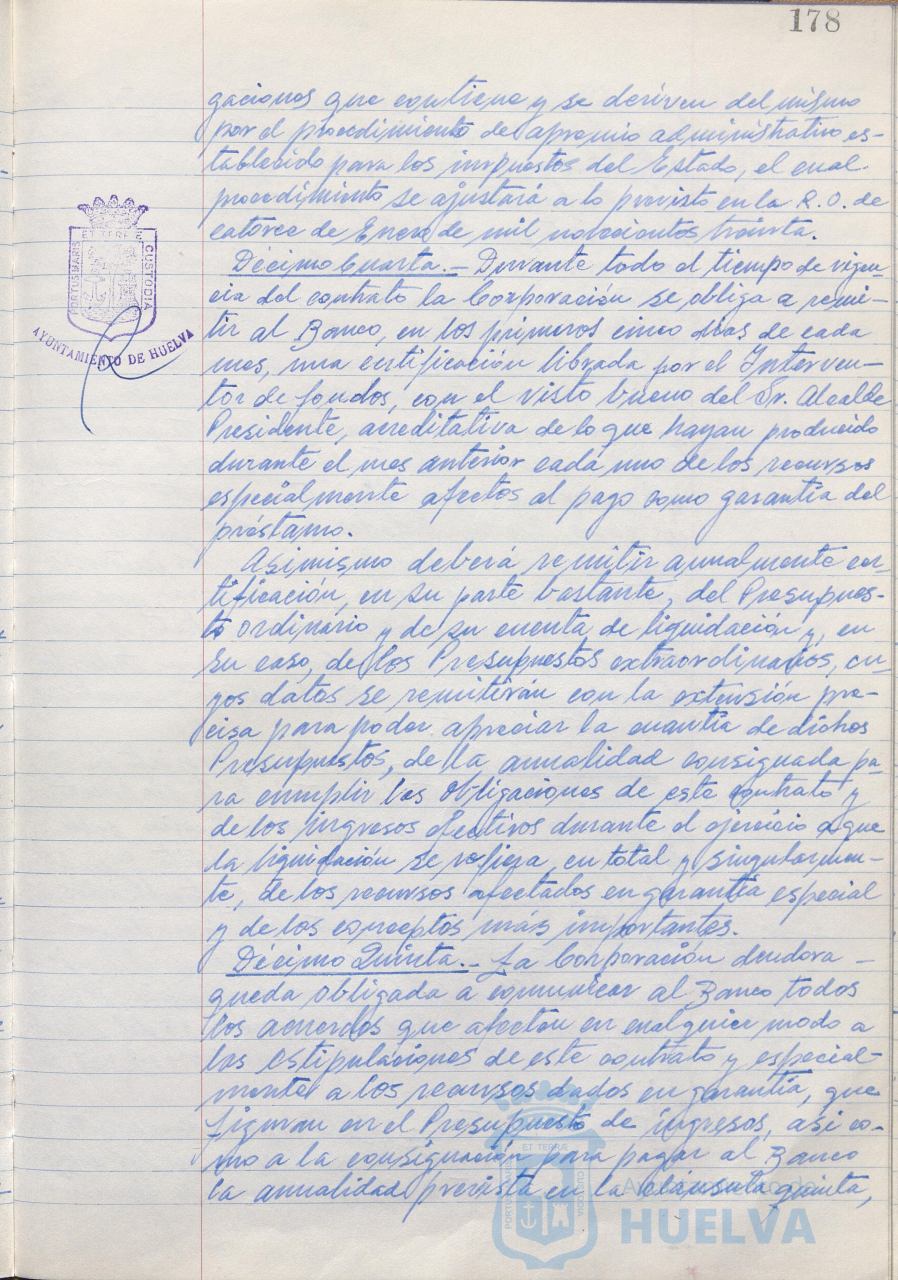 178
gaciones que contiene y se deriven del mismo
por el procedimiento de apremio administrativo es-
tablecido para los impuestos del Estado, el cual
procedimiento se ajustará a lo previsto en la R.O. de
catorce de Enero de mil novecientos treinta.
Décimo Cuarta.- Durante todo el tiempo de vigen-
cia del contrato la Corporación se obliga a remi-
tir al Banco, en los primeros cinco dias de cada
mes, una certificación librada por el Interven-
tor de fondos, con el visto bueno del Sr. Alcalde
Presidente, acreditativa de lo que hayan producido
durante el mes anterior cada uno de los recursos
especialmente afectos al pago como garantía del
préstamo.
Asimismo deberá remitir anualmente cer-
tificación, en su parte bastante, del Presupues-
to Ordinario y de su cuenta de liquidación y, en
su caso, de los Presupuestos extraordinarios, cu-
yos datos se remitirán con la extensión pre-
cisa para poder apreciar la cuantía de dichos
Presupuestos, de la anualidad consignada pa-
ra cumplir las Obligaciones de este contrato y
de los ingresos efectivos durante el ejercicio a que
la liquidación se refiera, en total y singularmen-
te, de los recursos afectados en garantía especial
y de los conceptos más importantes.
Décimo Quinta.- La Corporación deudora -
queda obligada a comunicar al Banco todos
los acuerdos que afecten en cualquier modo a
las estipulaciones de este contrato y especial-
mente a los recursos dados en garantía, que
figuran en el Presupuesto de ingresos, asi co-
mo a la consignación para pagar al Banco
la anualidad prevista en la cláusula quinta,
PORTUS MARIS ET TERRE CUSTODIA
AYUNTAMIENTO DE HUELVA
PORTUS MARIS ET TERRÆ CUSTODIA
Ayuntamiento de
HUELVA